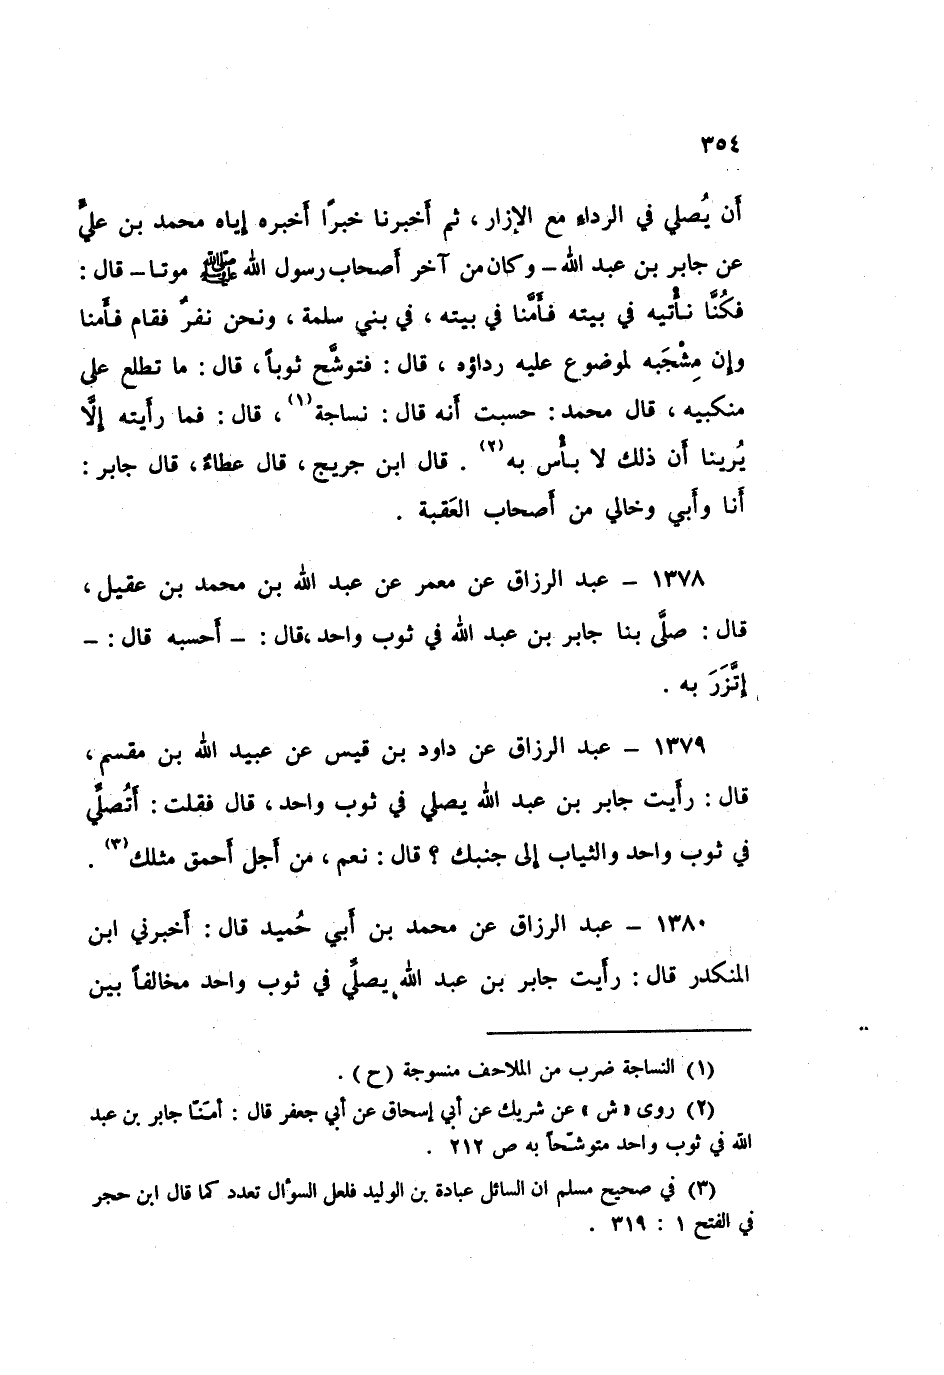 ٣٥٤
أَن يُصلي في الرداء مع الإزار ، ثم أَخبرنا خبرًا أَخبره إياه محمد بن عليٍّ
عن جابر بن عبد الله – وكان من آخر أَصحاب رسول الله ﷺ موتا – قال :
فكُنَّا نأْتيه في بيته فأَمَّنا في بيته ، في بني سلمة ، ونحن نفرٌ فقام فأَمنا
وإن مِشْجَبه لموضوع عليه رداؤه ، قال : فتوشَّح ثوباً ، قال : ما تطلع على
منكبيه ، قال محمد : حسبت أنه قال : نساجة(١) ، قال : فما رأَيته إلَّا
يُرينا أَن ذلك لا بأْس به(٢) . قال ابن جريج ، قال عطاءٌ ، قال جابر :
أَنا وأَبي وخالي من أَصحاب العَقبة .
١٣٧٨ – عبد الرزاق عن معمر عن عبد الله بن محمد بن عقيل ،
قال : صلَّى بنا جابر بن عبد الله في ثوب واحد ،قال : – أَحسبه قال : –
إتَّزَرَ به .
١٣٧٩ – عبد الرزاق عن داود بن قيس عن عبيد الله بن مقسم ،
قال : رأَيت جابر بن عبد الله يصلي في ثوب واحد ، قال فقلت : أَتُصلِّي
في ثوب واحد والثياب إلى جنبك ؟ قال : نعم ، من أَجل أَحمق مثلك(٣) .
١٣٨٠ – عبد الرزاق عن محمد بن أَبي حُميد قال : أَخبرني ابن
المنكدر قال : رأَيت جابر بن عبد الله يصلِّي في ثوب واحد مخالفاً بين
(١) النساجة ضرب من الملاحف منسوجة (ح) .
(٢) روى «ش» عن شريك عن أبي إسحاق عن أبي جعفر قال : أمَنّا جابر بن عبد
الله في ثوب واحد متوشّحاً به ص ٢١٢ .
(٣) في صحيح مسلم ان السائل عبادة بن الوليد فلعل السؤال تعدد كما قال ابن حجر
في الفتح ١ : ٣١٩ .